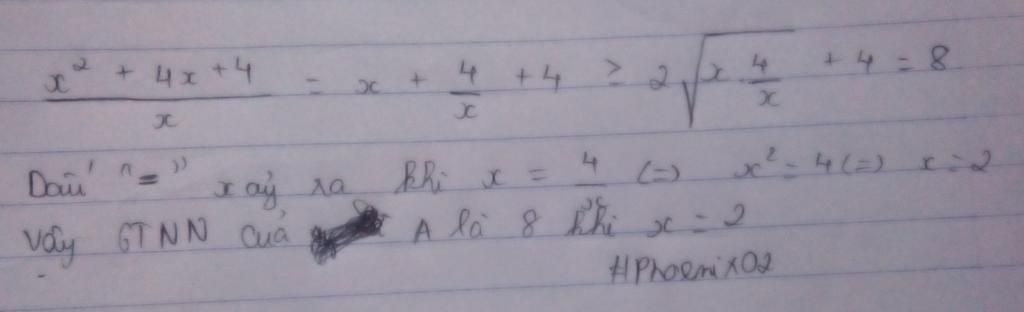 x² + 4x + 4 / x = x + 4/x + 4 ≥ 2√(x 4/x) + 4 = 8
Dấu "=" xảy ra khi x = 4/x (=) x² = 4 (=) x = 2
Vậy GTNN của A là 8 khi x = 2
#Phoenix02